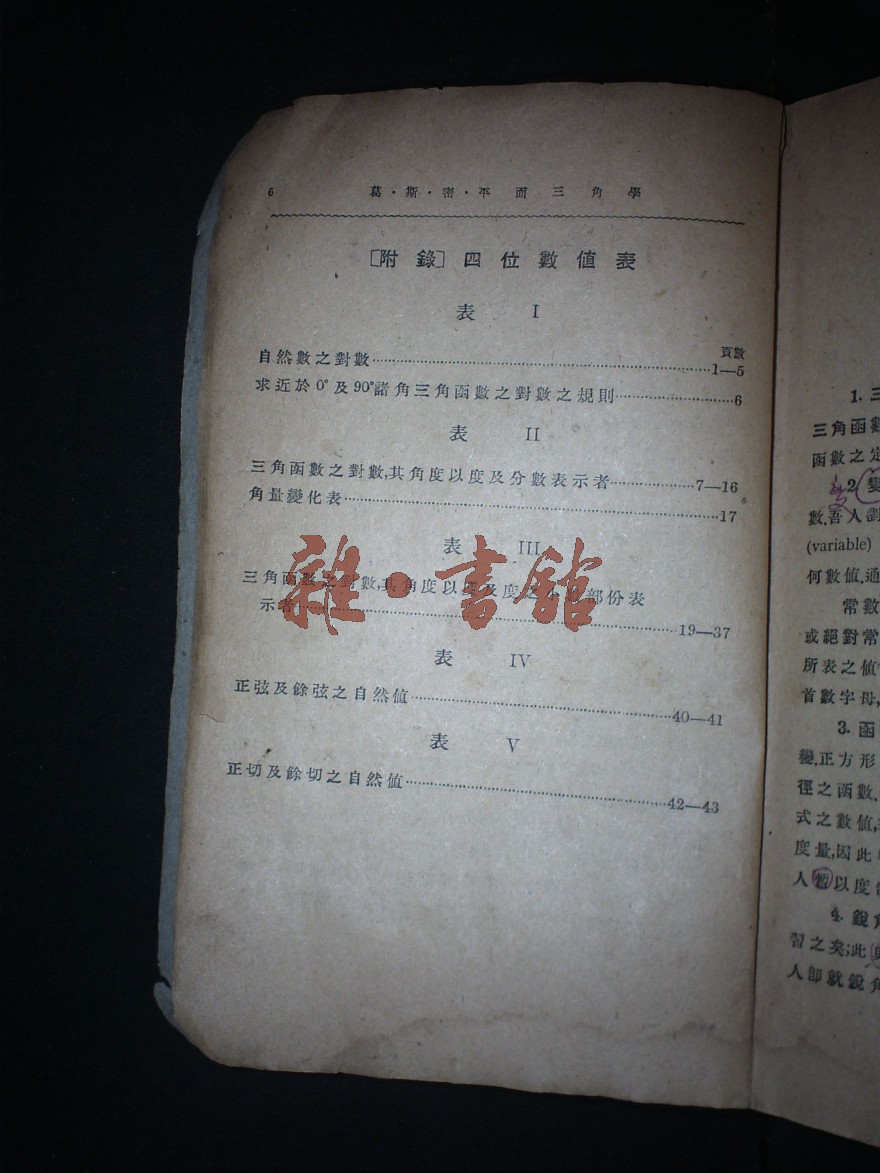 6 葛・斯・密・平面三角學
〔附錄〕四位數值表
表 I
頁數
自然數之對數……1—5
求近於0°及90°諸角三角函數之對數之規則……6
表 II
三角函數之對數,其角度以度及分數表示者……7—16
角量變化表……17
表 III
三角函數之對數,其角度以度及度之 部份表
示者……19—37
表 IV
正弦及餘弦之自然値……40—41
表 V
正切及餘切之自然値……42—43
雜・書館
1. 三
三角函數
函數之定
2. 變
數,吾人
(variable)
何數値,通
常數
或絕對常
所表之値
首數字母,
3. 函
變,正方形
徑之函數.
式之數値,
度量,因此
人暫以度
4. 銳角
習之矣;此
人卽就銳角